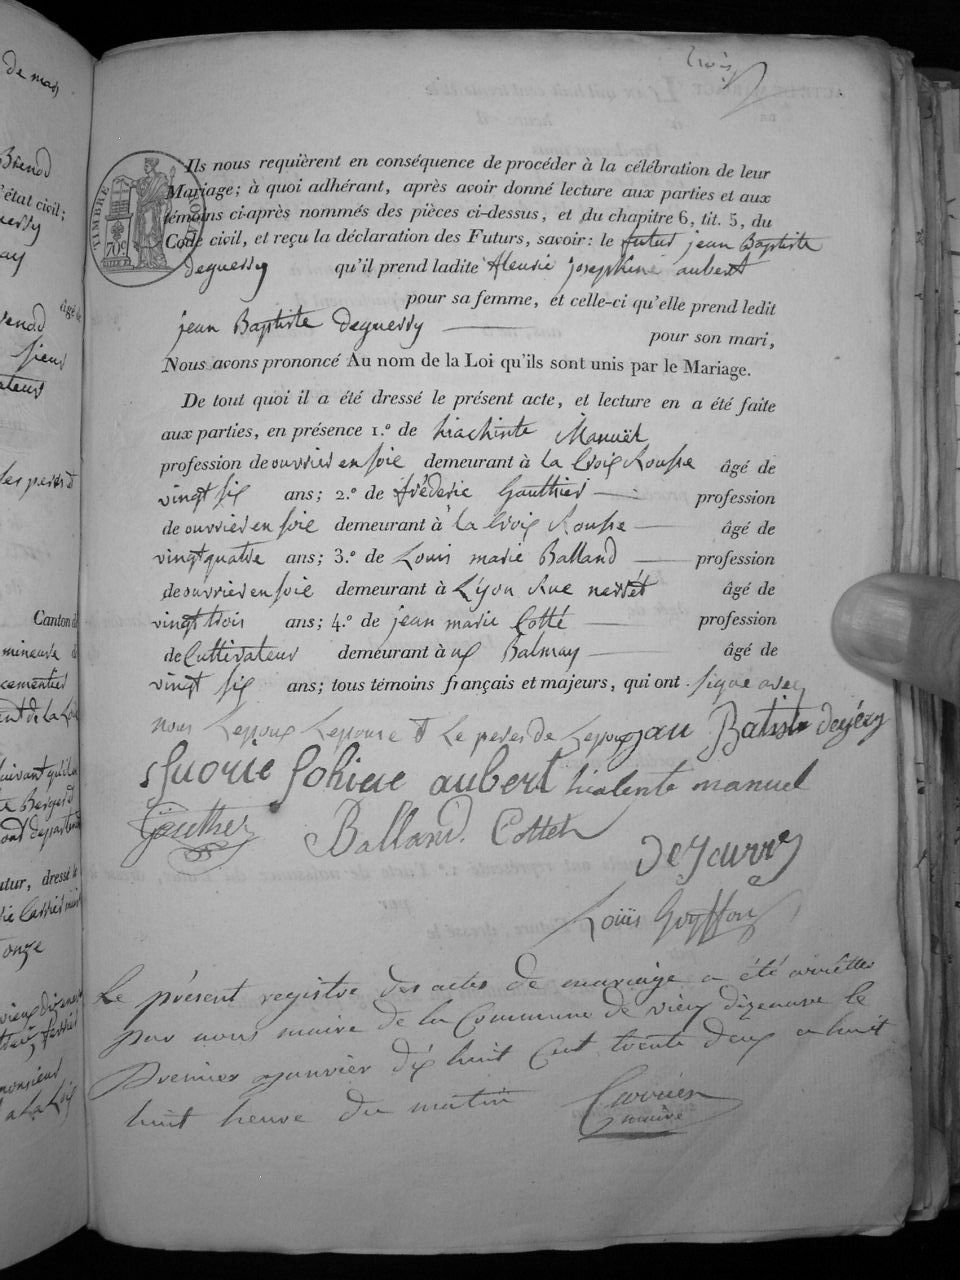 trois
de mar
Brénod
l'état civil;
âgé de
sieur
Canton de
mineure de
TIMBRE ROYAL
70c.
Ils nous requièrent en conséquence de procéder à la célébration de leur
Mariage; à quoi adhérant, après avoir donné lecture aux parties et aux
témoins ci-après nommés des pièces ci-dessus, et du chapitre 6, tit. 5, du
Code civil, et reçu la déclaration des Futurs, savoir: le futur jean Baptiste
deguerry qu'il prend ladite fleurie josephine aubert
pour sa femme, et celle-ci qu'elle prend ledit
jean Baptiste Deguerry pour son mari,
Nous avons prononcé Au nom de la Loi qu'ils sont unis par le Mariage.
De tout quoi il a été dressé le présent acte, et lecture en a été faite
aux parties, en présence 1.º de hiachinte Manuël
profession de ouvrier en soie demeurant à la Croix Rousse âgé de
vingt six ans; 2.º de fréderic Gauthier profession
de ouvrier en soie demeurant à la Croix Rousse âgé de
vingt quatre ans; 3.º de Louis marie Balland profession
de ouvrier en soie demeurant à Lÿon Rue âgé de
vingt trois ans; 4.º de jean marie Cotté profession
de Cultivateur demeurant à Balmay âgé de
vingt six ans; tous témoins français et majeurs, qui ont signé avec
nous Lepoux Lepouse et Le peres de Lepoux jean Batiste degéry
aubert hialente manuel
Gauthier Balland Cottet
Louis Guyffon
Le présent registre des actes de mariage a été arrêtter
par nous maire de la Commune de vieux dizenave le
Premier janvier dix huit Cent trente deux a huit
huit heure du matin Carrier
maire